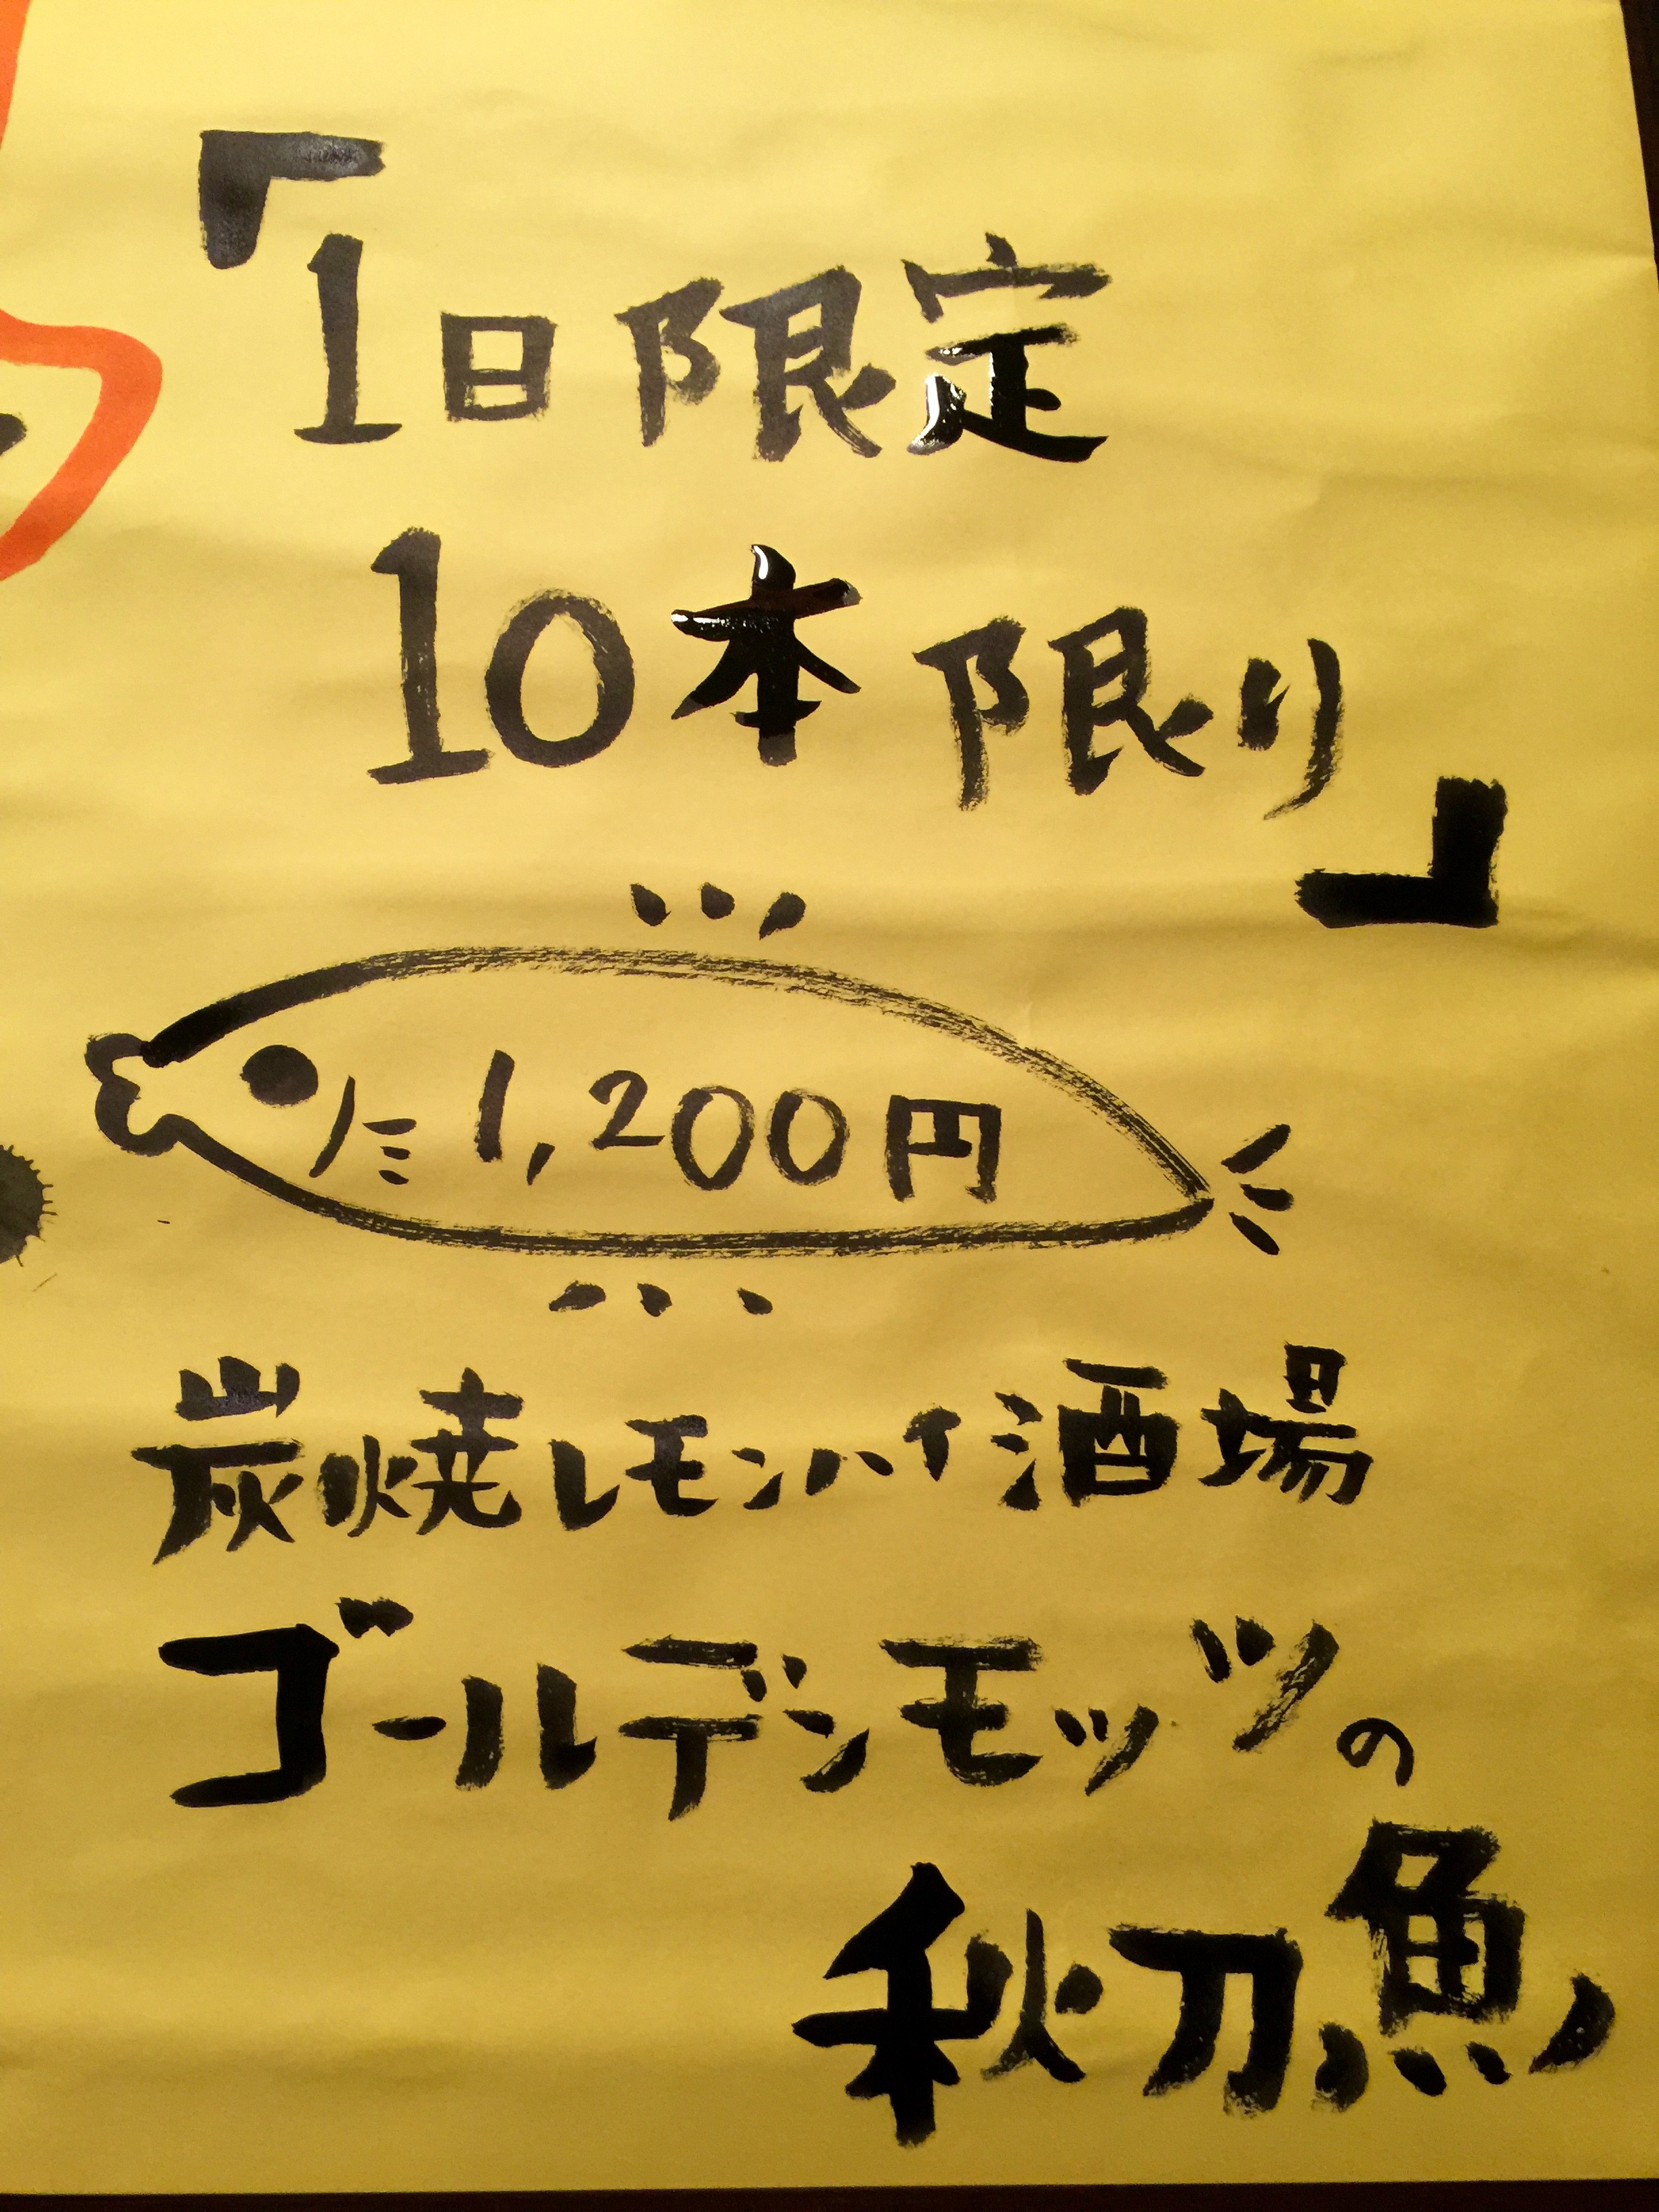 「1日限定
10本限り」
1,200円
炭焼レモンハイ酒場
ゴールデンモッツの
秋刀魚